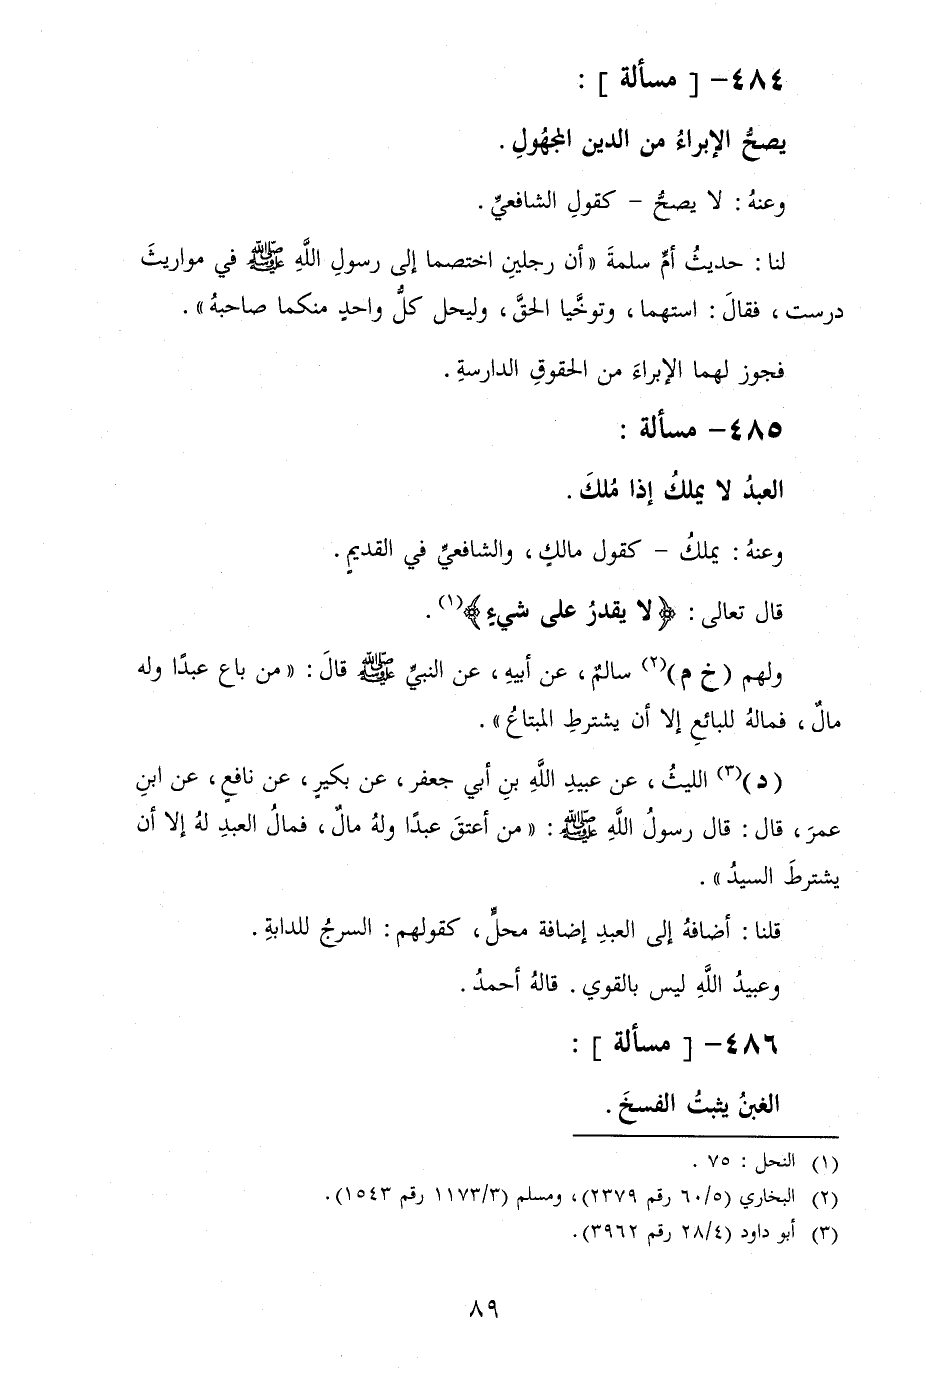 ٤٨٤- [ مسألة ] :
يصحُّ الإبراءُ من الدين المجهُولِ .
وعنهُ : لا يصحُّ - كقولِ الشافعيِّ .
لنا : حديثُ أمِّ سلمةَ « أن رجلينِ اختصما إلى رسولِ اللَّهِ ﷺ في مواريثَ
درست ، فقالَ : استهما ، وتوخَّيا الحقَّ ، وليحل كلُّ واحدٍ منكما صاحبهُ » .
فجوز لهما الإبراءَ من الحقوقِ الدارسةِ .
٤٨٥- مسألة :
العبدُ لا يملكُ إذا مُلكَ .
وعنهُ : يملكُ - كقول مالكٍ ، والشافعيِّ في القديمِ .
قال تعالى : ﴿ لا يقدرُ على شيءٍ ﴾(١) .
ولهم (خ م)(٢) سالمٌ ، عن أبيهِ ، عن النبيِّ ﷺ قالَ : « من باع عبدًا وله
مالٌ ، فمالهُ للبائعِ إلا أن يشترطِ المبتاعُ » .
(د)(٣) الليثُ ، عن عبيدِ اللَّهِ بنِ أبي جعفر ، عن بكيرٍ ، عن نافعٍ ، عن ابنِ
عمرَ ، قال : قال رسولُ اللَّهِ ﷺ : « من أعتقَ عبدًا ولهُ مالٌ ، فمالُ العبدِ لهُ إلا أن
يشترطَ السيدُ » .
قلنا : أضافهُ إلى العبدِ إضافة محلٍّ ، كقولهم : السرجُ للدابةِ .
وعبيدُ اللَّهِ ليس بالقوي . قالهُ أحمدُ .
٤٨٦- [ مسألة ] :
الغبنُ يثبتُ الفسخَ .
(١) النحل : ٧٥ .
(٢) البخاري (٦٠/٥ رقم ٢٣٧٩) ، ومسلم (١١٧٣/٣ رقم ١٥٤٣) .
(٣) أبو داود (٢٨/٤ رقم ٣٩٦٢) .
٨٩